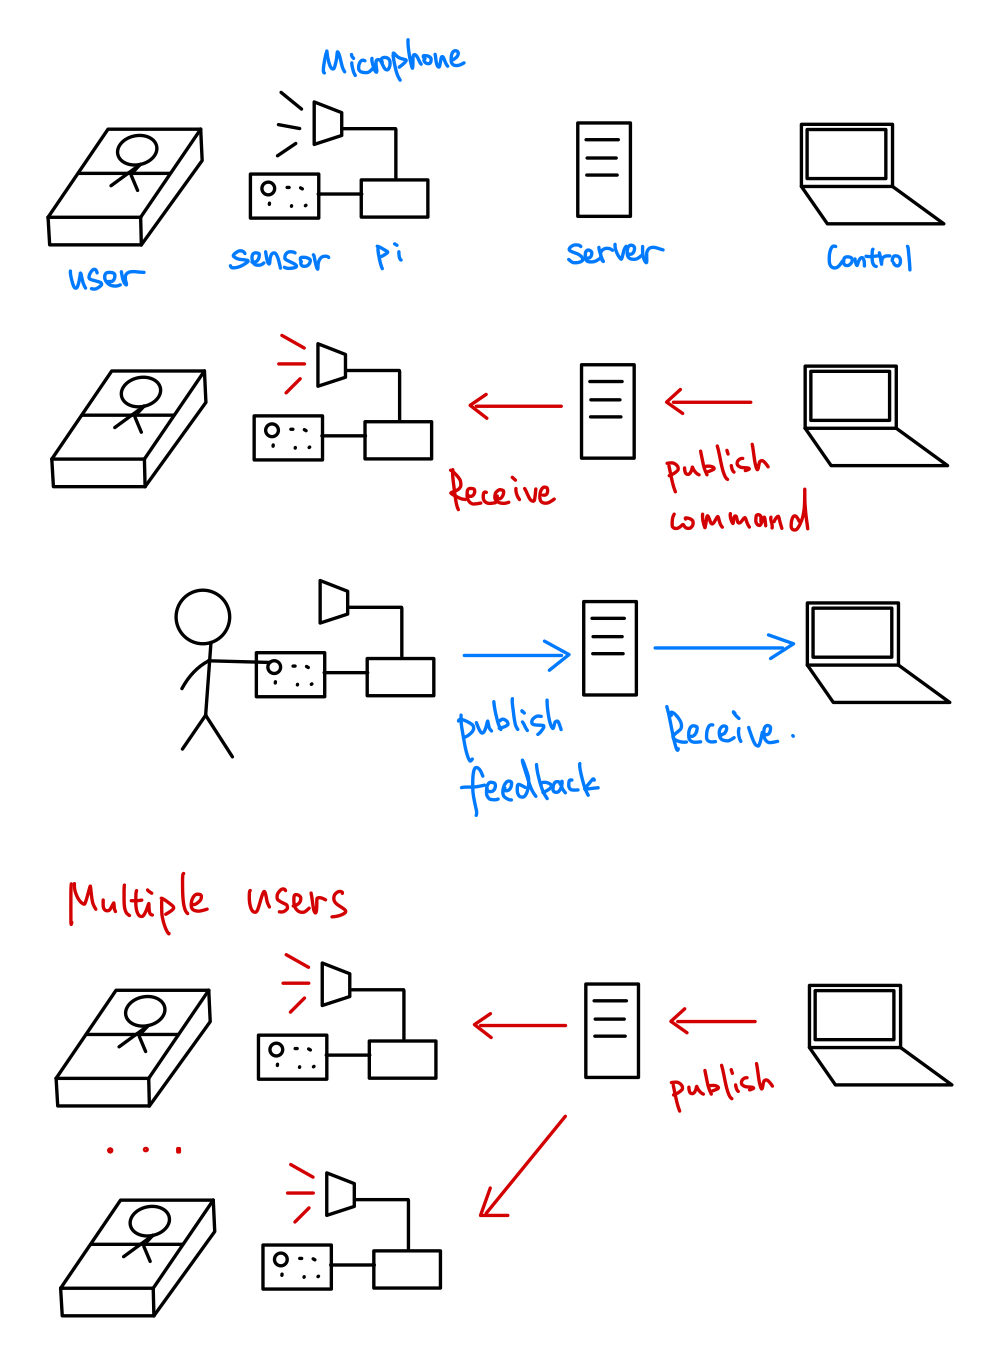 Microphone
user
sensor
Pi
server
Control
Receive
publish
command
publish
feedback
Receive.
Multiple users
publish